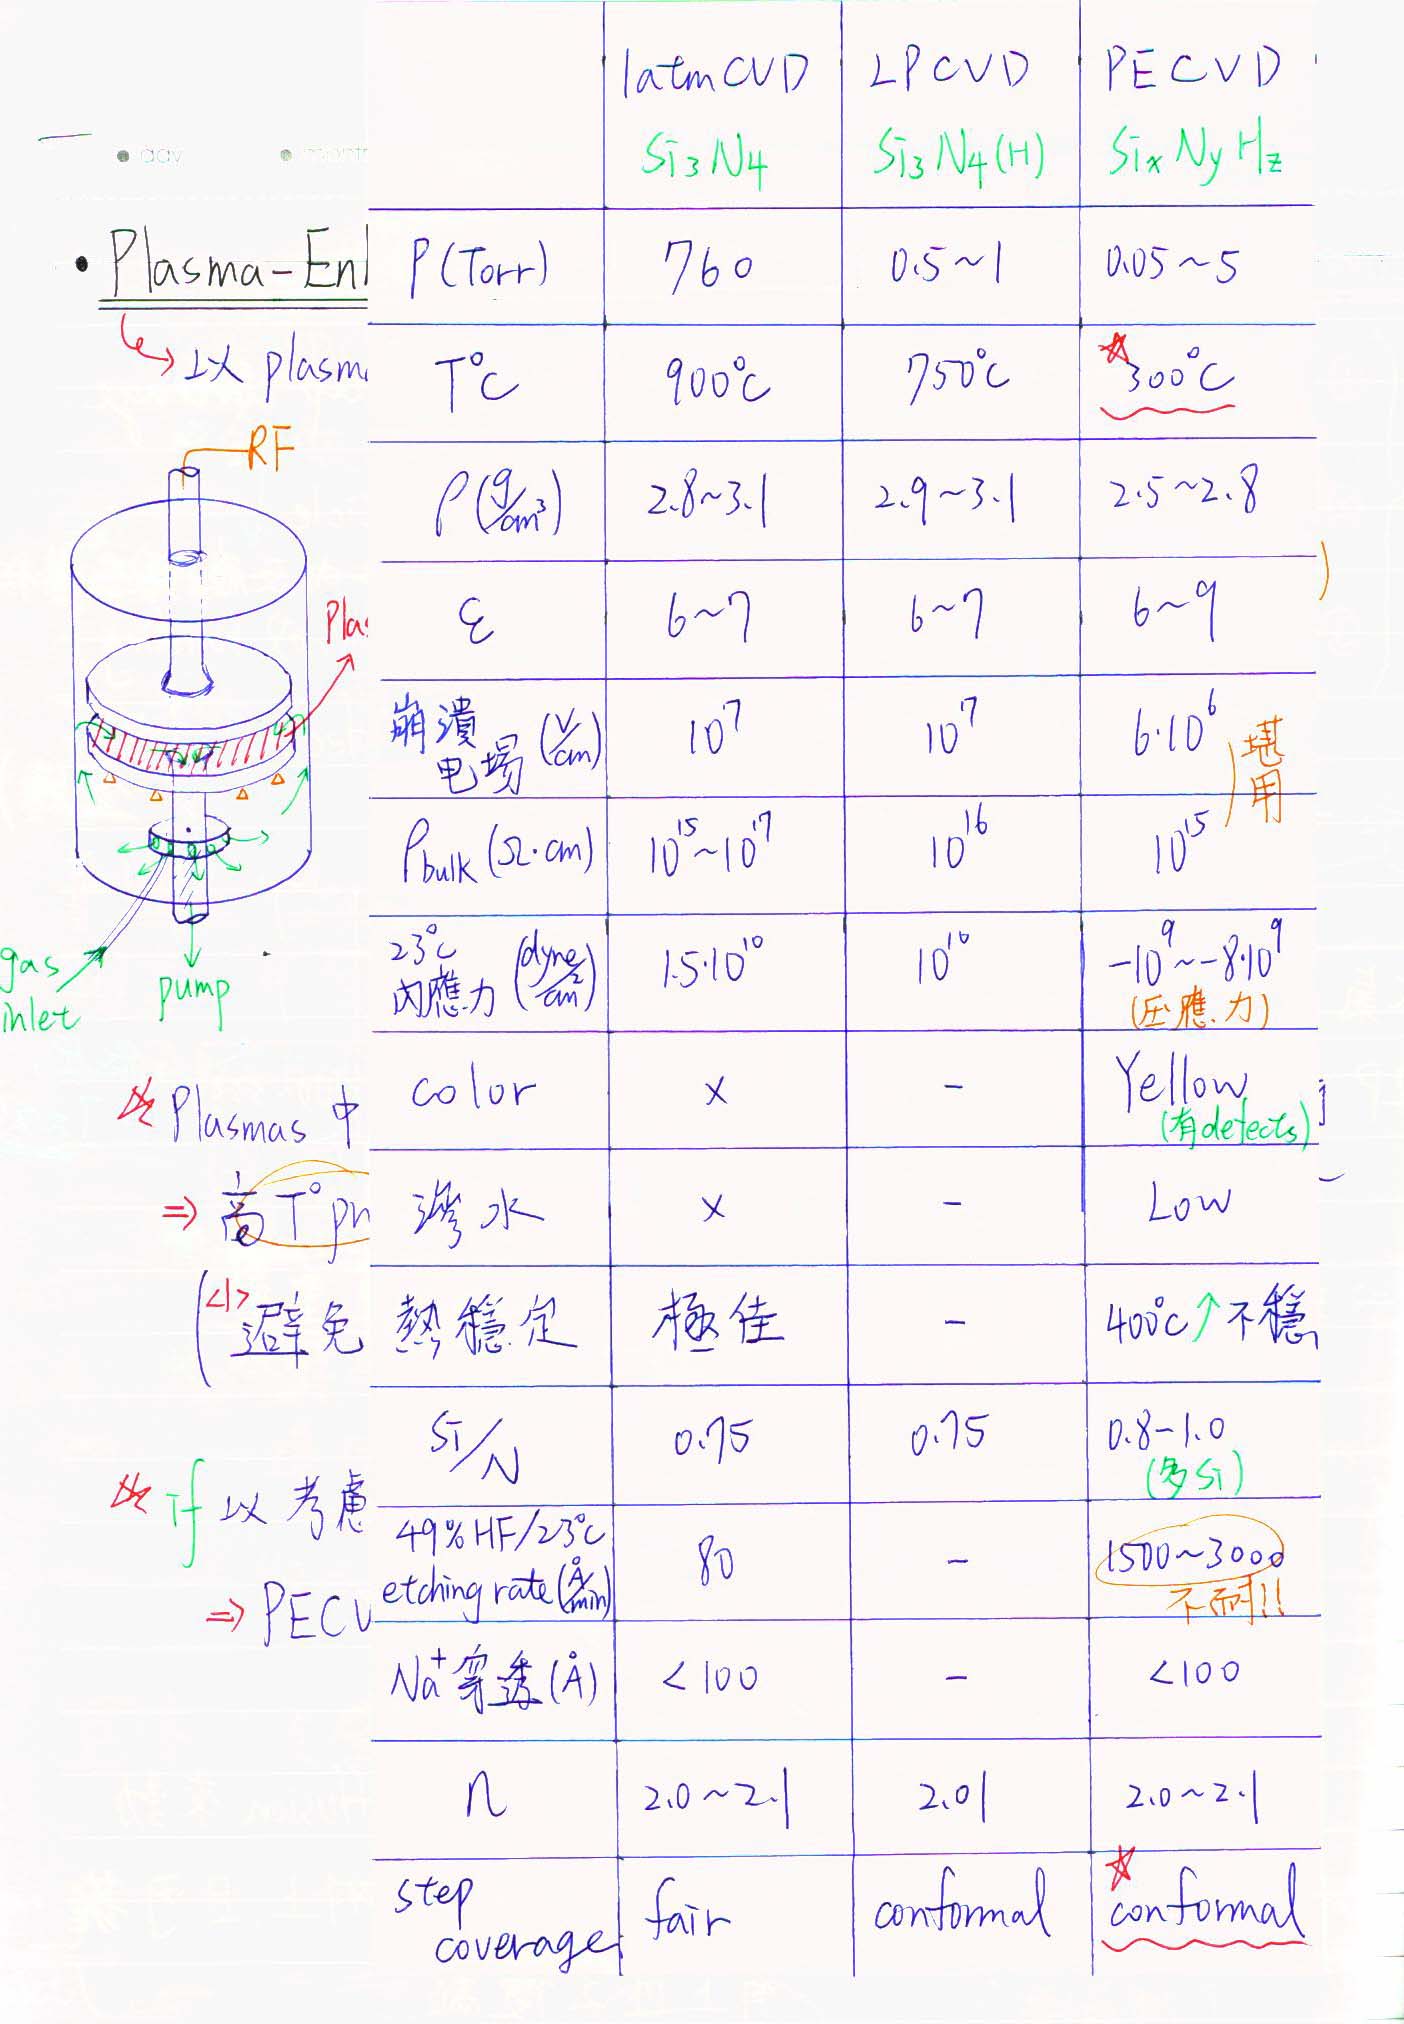 day
month
• Plasma-En
以 plasm
RF
Plas
gas
inlet
pump
Plasmas 中
⇒ 高T°pn
(<1> 避免
if 以考慮
⇒ PECV
1atmCVD LPCVD PECVD
Si₃N₄ Si₃N₄(H) SixNyHz
P(Torr) 760 0.5~1 0.05~5
T°C 900°C 750°C 300°C
ρ(g/cm³) 2.8~3.1 2.9~3.1 2.5~2.8
ε 6~7 6~7 6~9
崩潰电場(V/cm) 10⁷ 10⁷ 6·10⁶
堪用
ρbulk(Ω·cm) 10¹⁵~10¹⁷ 10¹⁶ 10¹⁵
23°C 內應力(dyne/cm²) 1.5·10¹⁰ 10¹⁰ -10⁹~-8·10⁹
(压應力)
color x - Yellow
(有defects)
滲水 x - Low
熱穩定 極佳 - 400°C↑不穩
Si/N 0.75 0.75 0.8-1.0
(多Si)
49%HF/23°C
etching rate(Å/min) 80 - 1500~3000
不耐!!
Na⁺穿透(Å) <100 - <100
n 2.0~2.1 2.01 2.0~2.1
step
coverage fair conformal conformal